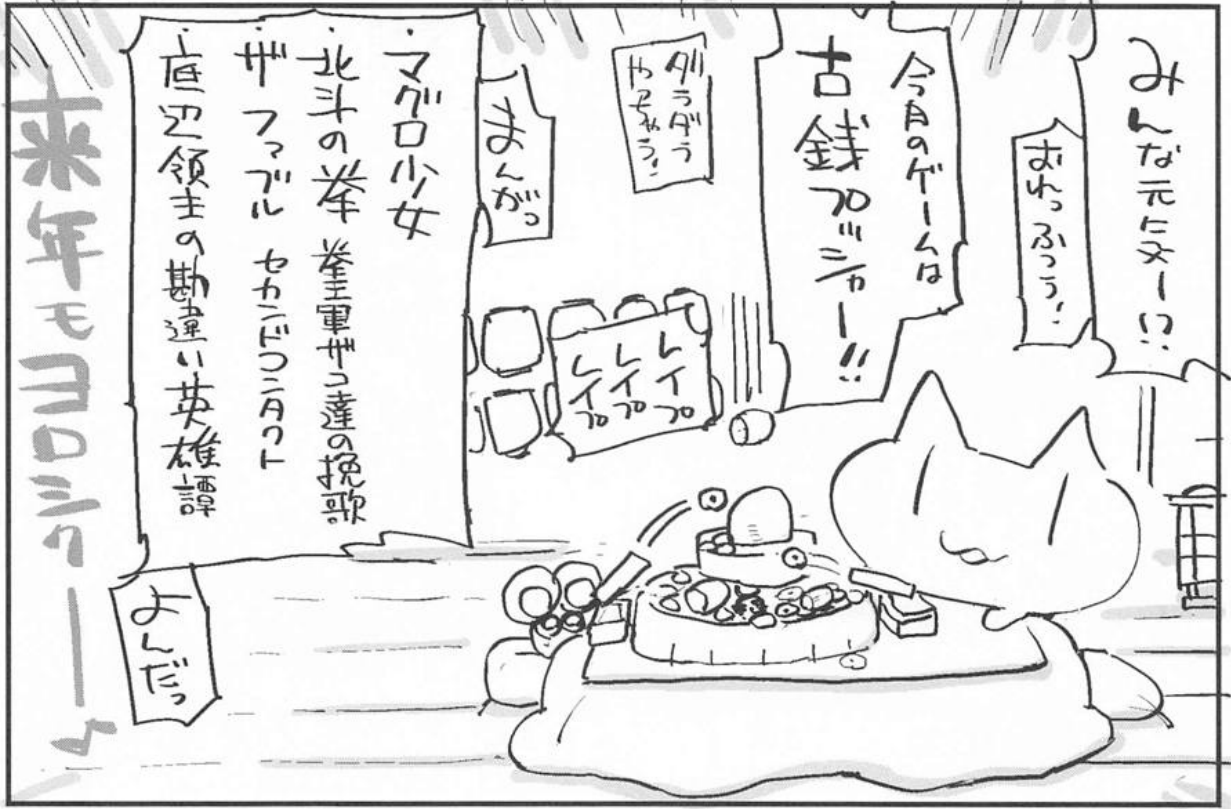 みんな元気ー!?
おれっふつう!
今月のゲームは
古銭プッシャー!!
ダラダラ
やっちゃう!
レイプ
レイプ
レイプ
まんがっ
・マグロ少女
・北斗の拳 拳王軍ザコ達の挽歌
・ザ ファブル セカンドコンタクト
・底辺領主の勘違い英雄譚
よんだっ
来年モヨロシクー♪